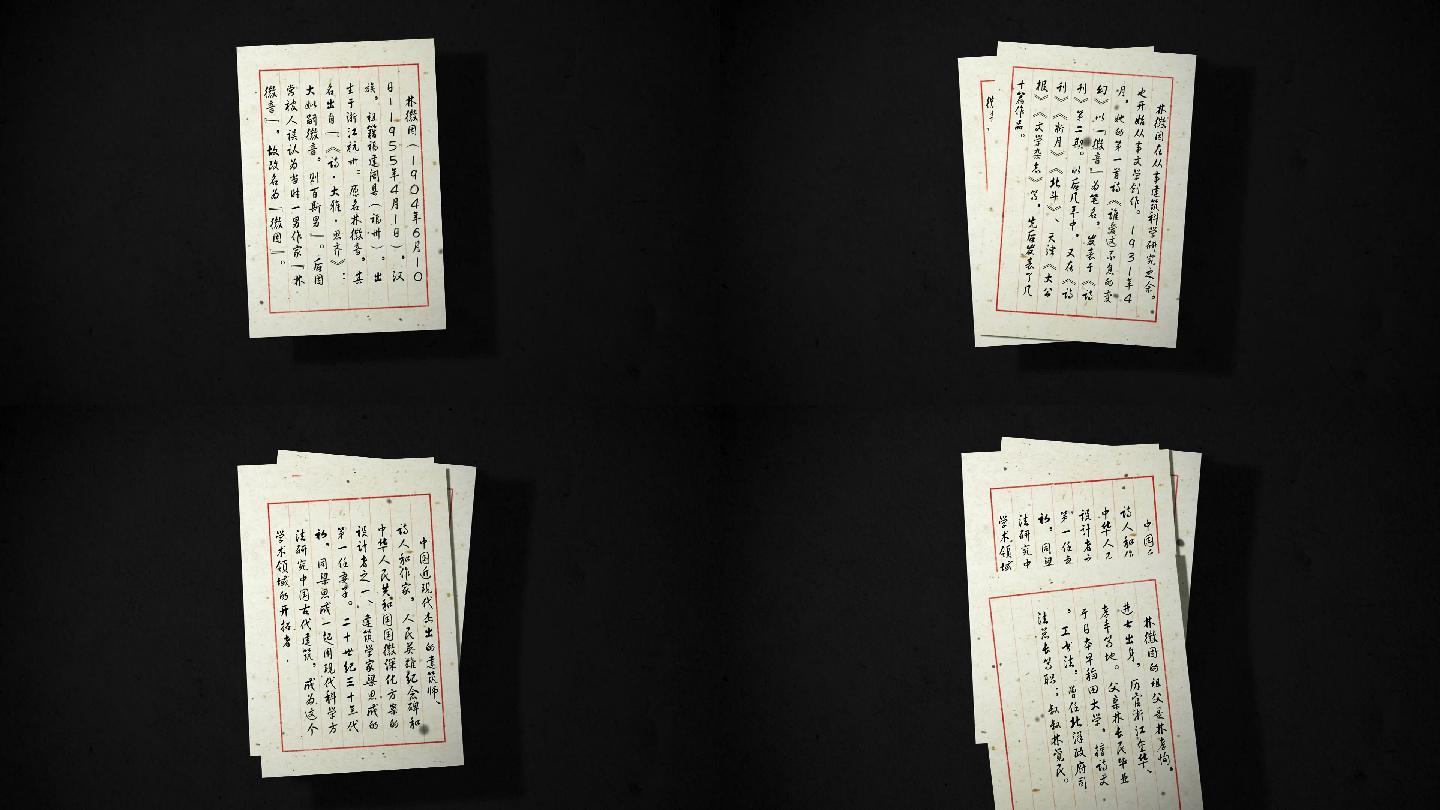 林徽因（1904年6月10
日－1955年4月1日），汉
族，祖籍福建闽县（福州），出
生于浙江杭州。原名林徽音，其
名出自「《诗·大雅·思齐》：
大姒嗣徽音，则百斯男」。后因
常被人误认为当时一男作家「林
微音」，故改名为「徽因」。
林徽因在从事建筑科学研究之余，
也开始从事文学创作。1931年4
月，她的第一首诗《谁爱这不息的变
幻》以「徽音」为笔名，发表于《诗
刊》第二期。以后几年中，又在《诗
刊》《新月》《北斗》、天津《大公
报》《文学杂志》等，先后发表了几
十篇作品。
中国近现代杰出的建筑师、
诗人和作家，人民英雄纪念碑和
中华人民共和国国徽深化方案的
设计者之一、建筑学家梁思成的
第一任妻子。二十世纪三十年代
初，同梁思成一起用现代科学方
法研究中国古代建筑，成为这个
学术领域的开拓者，
中国
诗人和
中华人
设计者
第一任
初，同
法研究中
学术领域
林徽因的祖父是林孝恂，
进士出身，历官浙江金华、
孝丰等地。父亲林长民毕业
于日本早稻田大学，擅诗文
，工书法，曾任北洋政府司
法总长等职；叔叔林觉民，